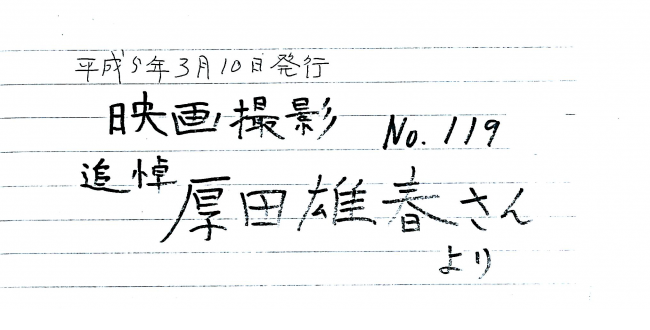 平成5年3月10日発行
映画撮影 No.119
追悼 厚田雄春さん
より